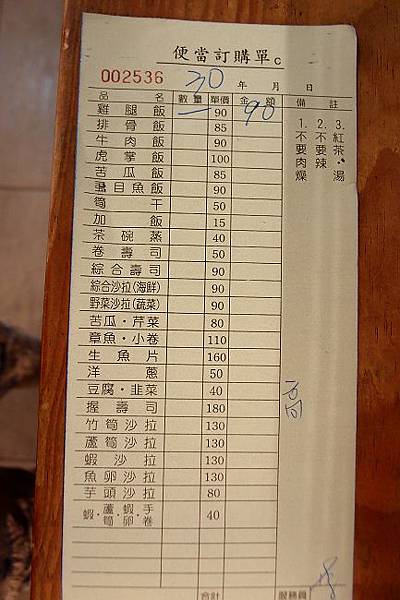 便當訂購單c
002536 30 年 月 日
品名 數量 單價 金額 備註
雞腿飯 一 90 90
排骨飯 85
牛肉飯 90
虎掌飯 100
苦瓜飯 85
虱目魚飯 90
筍干 50
加飯 15
茶碗蒸 40
卷壽司 50
綜合壽司 90
綜合沙拉(海鮮) 90
野菜沙拉(蔬菜) 90
苦瓜·芹菜 80
章魚·小卷 110
生魚片 160
洋蔥 50
豆腐·韭菜 40
握壽司 180
竹筍沙拉 130
蘆筍沙拉 130
蝦沙拉 130
魚卵沙拉 130
芋頭沙拉 80
蝦·蘆筍·蝦卵·手卷 40
合計 服務員
3.紅茶·湯
2.不要辣
1.不要肉燥